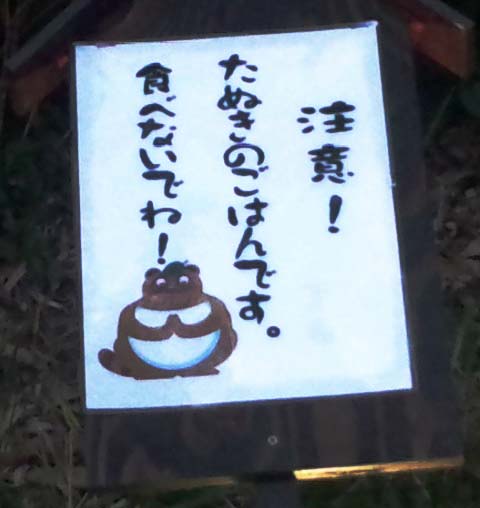 注意！
たぬきのごはんです。
食べないでね！